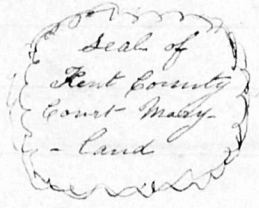 Seal of
Kent County
Court Mary-
- land